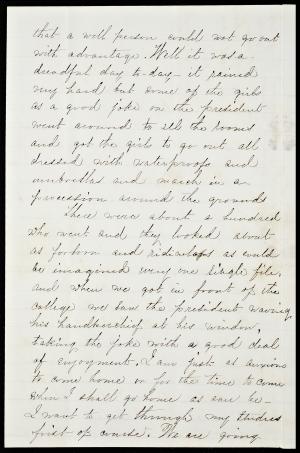 that a well person could not go out
with advantage. Well it was a
dreadful day to-day - it rained
very hard but some of the girls
as a good joke on the president
went around to all the rooms
and got the girls to go out all
dressed with waterproofs and
umbrellas and march in a
procession around the grounds
There were about a hundred
who went and they looked about
as forlorn and ridiculous as could
be imagined every one single file,
and when we got in front of the
college we saw the president waving
his handkerchief at his window,
taking the joke with a good deal
of enjoyment. I am just as anxious
to come home or for the time to come
when I shall go home as can be -
I want to get through my studies
first of course. We are going